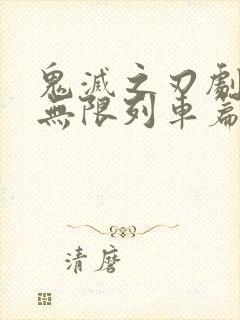 鬼滅之刃劇
無限列車篇
清麿